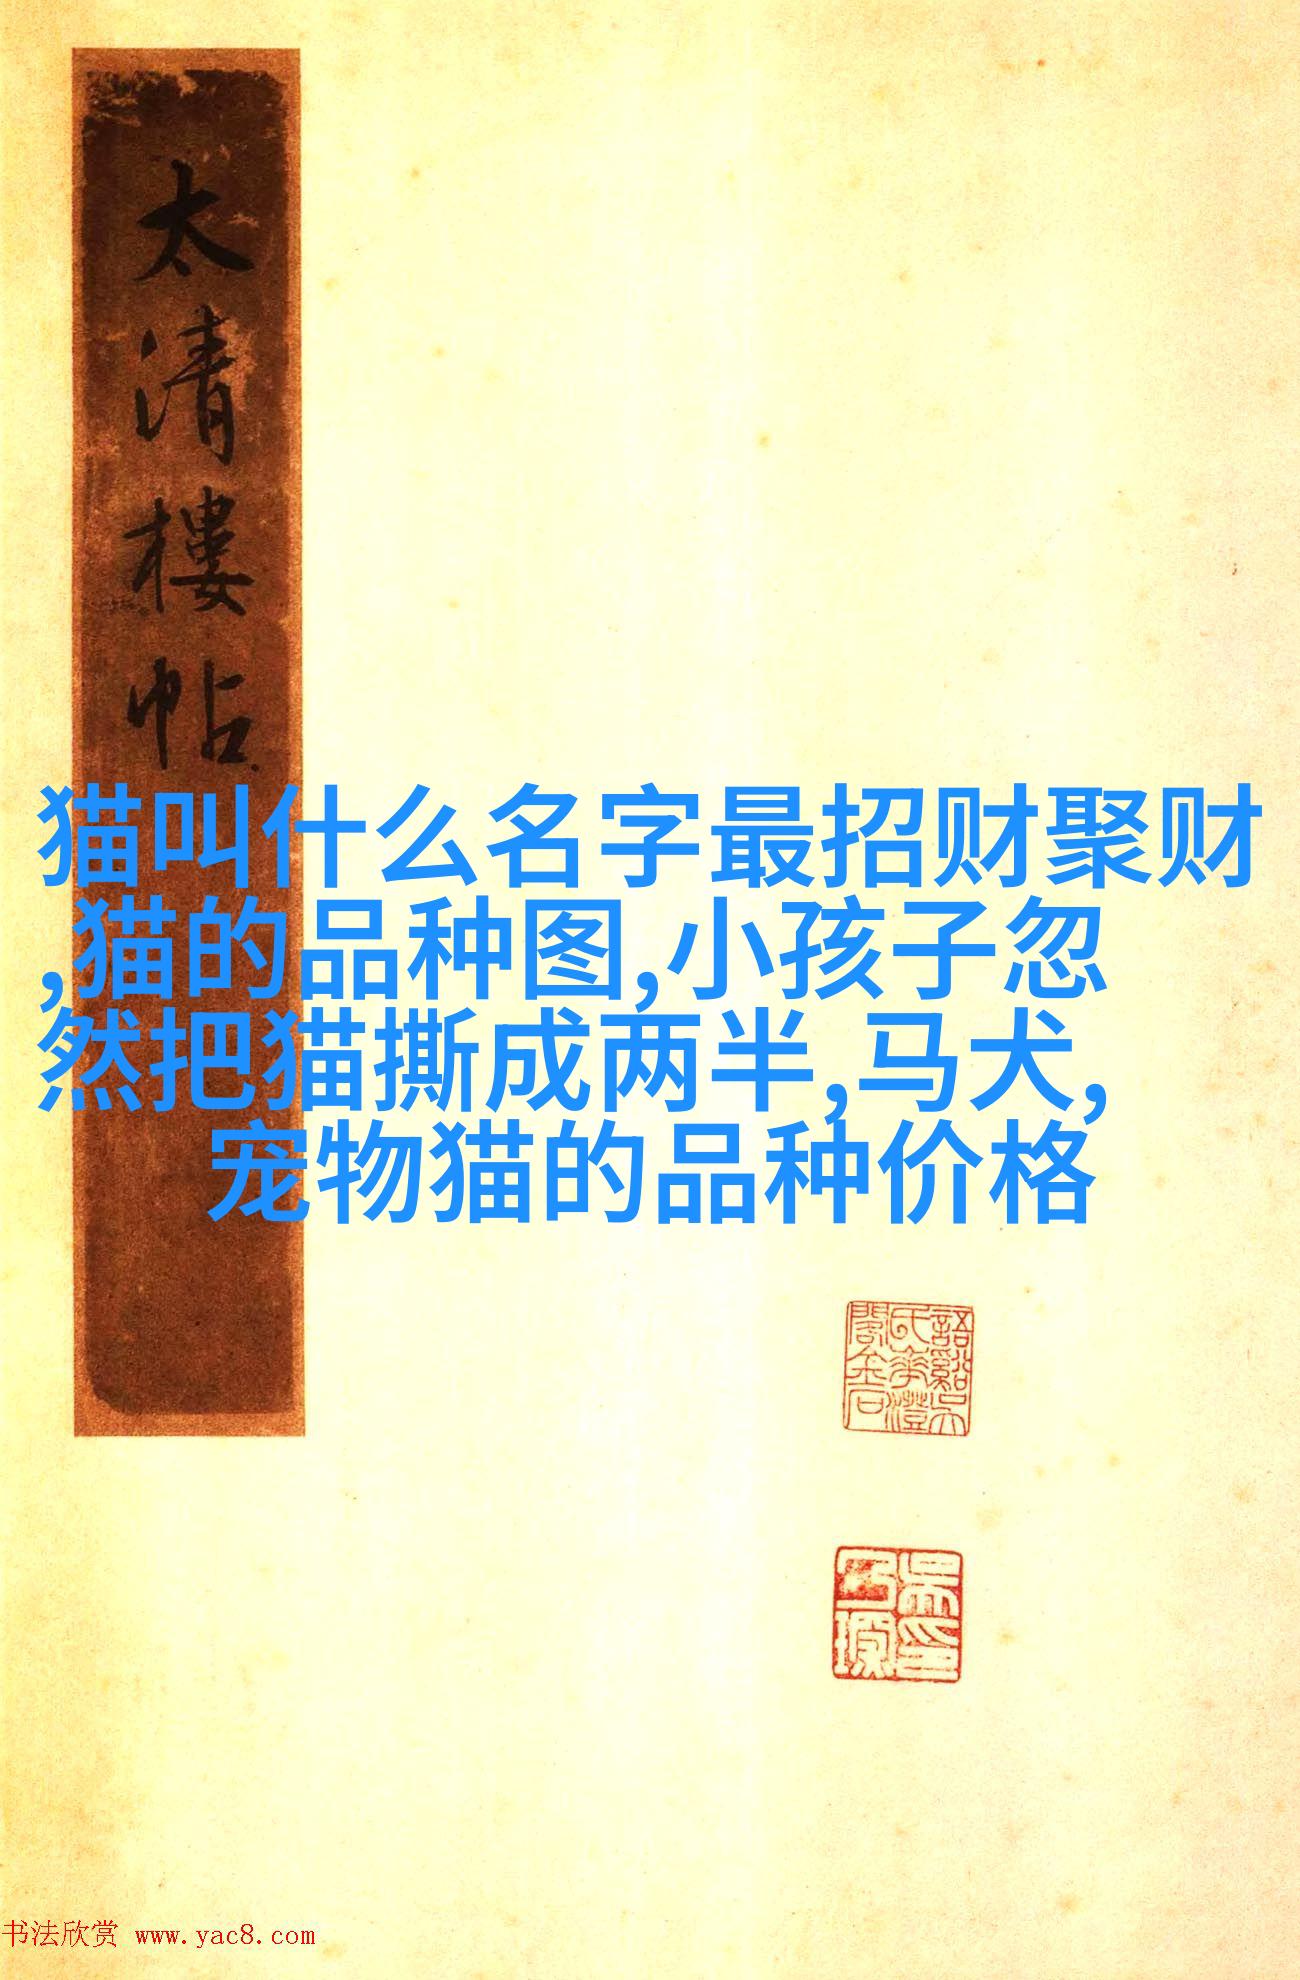 太清樓帖
猫叫什么名字最招财聚财
,猫的品种图,小孩子忽
然把猫撕成两半,马犬,
宠物猫的品种价格
书法欣赏 www.yac8.com